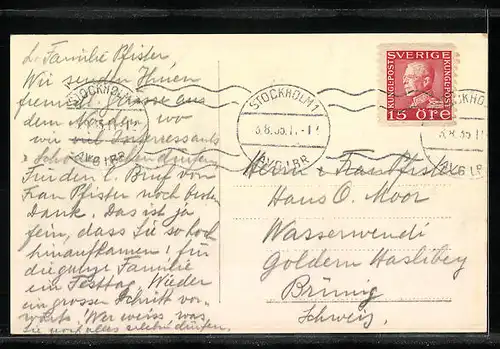 L. Familie Pfister
Wir senden Ihnen
freundl. Grüsse aus
dem Norden, wo
wir viel Interressants
& Schönes
Für den l. Brief von
Frau Pfister noch besten
Dank. Das ist ja
fein, dass Sie so hoch
hinaufkamen! für
die ganze Familie
ein Festtag. Wieder
ein grosser Schritt vor-
wärts! Wer weiss was
Sie noch alles erleben dürfen.
STOCKHOLM 1
AVG LBR
STOCKHOLM 1
3.8.35.
AVG LBR
STOCKHOLM 1
3.8.35.
AVG LBR
SVERIGE
KUNGL.POST
KUNGL.POST
15 ÖRE
Herrn & Frau Pfister
Haus O. Moor
Wasserwendi
Goldern Hasliberg
Brünig
Schweiz.